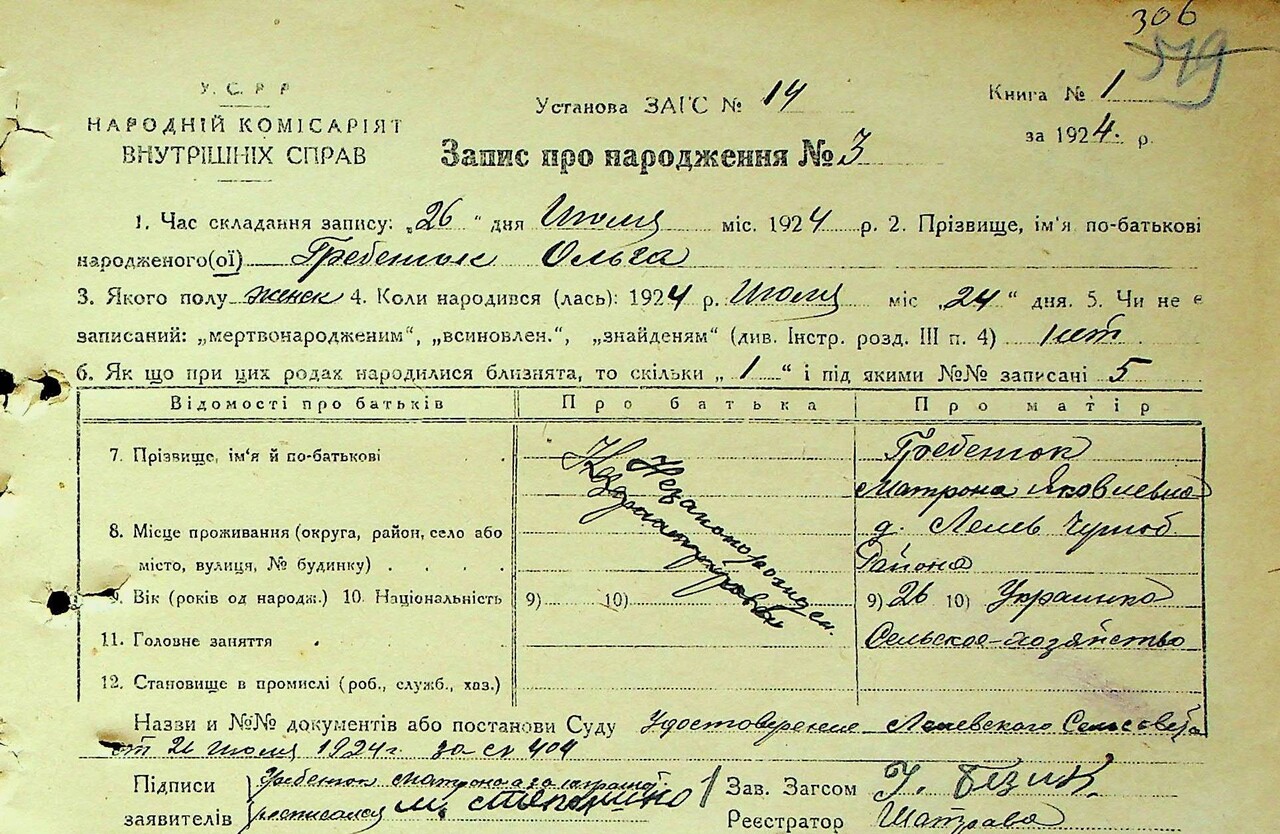 306
519
У. С. Р. Р.
НАРОДНІЙ КОМІСАРІЯТ
ВНУТРІШНІХ СПРАВ
Установа ЗАГС № 14
Книга № 1
за 1924. р.
Запис про народження № 3
1. Час складання запису: „26 “ дня Июля міс. 1924 р. 2. Прізвище, ім'я по-батькові
народженого(ої) Гребенюк Ольга
3. Якого полу женск 4. Коли народився (лась): 1924 р. Июля міс „24“ дня. 5. Чи не є
записаний: „мертвонародженим“, „всиновлен.“, „знайденям“ (див. Інстр. розд. III п. 4)
6. Як що при цих родах народилися близнята, то скільки „ 1 “ і під якими №№ записані 5
Відомості про батьків Про батька Про матір
7. Прізвище, ім'я й по-батькові Гребенюк
Матрона Яковлевна
8. Місце проживання (округа, район, село або д. Лелев
місто, вулиця, № будинку) Района
9. Вік (років од народж.) 10. Національність 9) 10) 9) 26 10) Украинка
11. Головне заняття Сельское-хозяйство
12. Становище в промислі (роб., служб., хаз.)
Назви и №№ документів або постанови Суду Удостоверение Лелевского Сельсовета
от 26 июля 1924 г. за № 404
Підписи Гребенюк Матрона а за
заявителів росписался
Зав. Загсом
Реєстратор